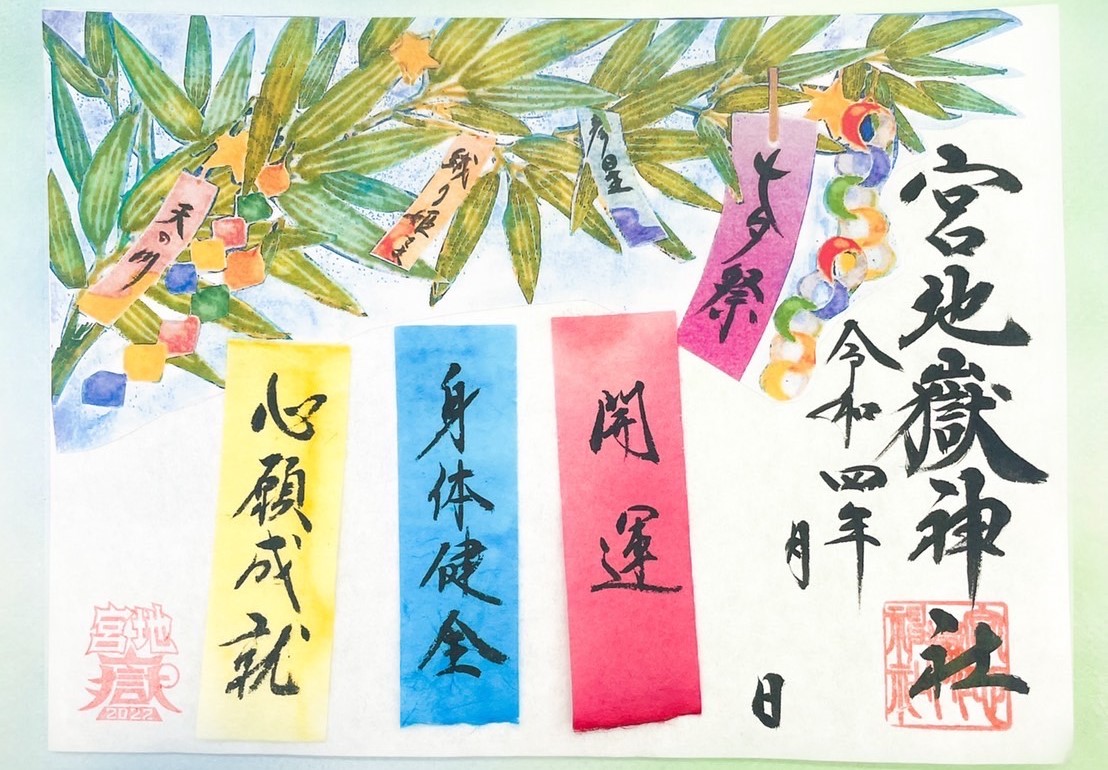 宮地嶽神社
令和四年
月
日
七夕祭
彦星
織り姫さま
天の川
開運
身体健全
心願成就
宮地
嶽
2022